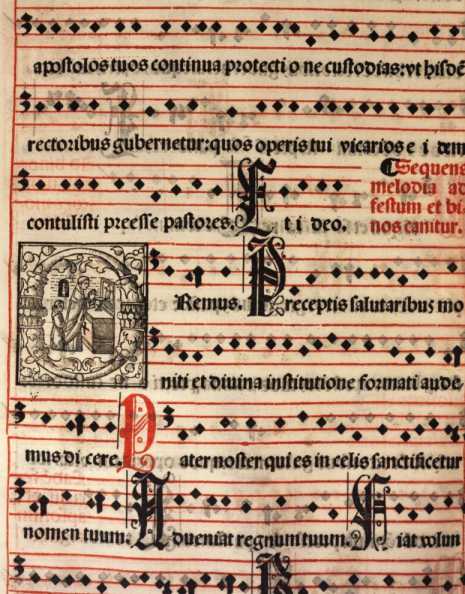 apostolos tuos continua protecti o ne custodias: vt hisdē
rectoribus gubernetur: quos operis tui vicarios e i dem
contulisti preesse pastores. E t i deo.
¶ Sequens
melodia ad
festum et bi
nos canitur.
Remus. P receptis salutaribus mo
niti et diuina institutione formati aude
mus di cere. P ater noster qui es in celis sanctificetur
nomen tuum. A dueniat regnum tuum. F iat volun